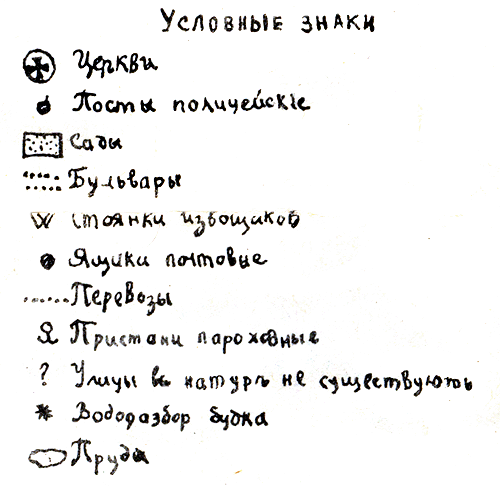 Условные знаки
Церкви
Посты полицейскіе
Сады
Бульвары
Стоянки извощиков
Ящики почтовые
Перевозы
Пристани пароходные
? Улицы въ натурѣ не существуютъ
Водоразбор будка
Пруды